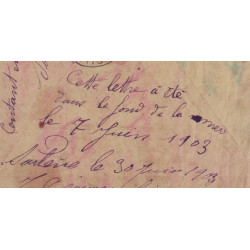 Cette lettre a été
dans le fond de la mer
le 7 Juin 1903
Sartène 30 Juin 1903
Contant